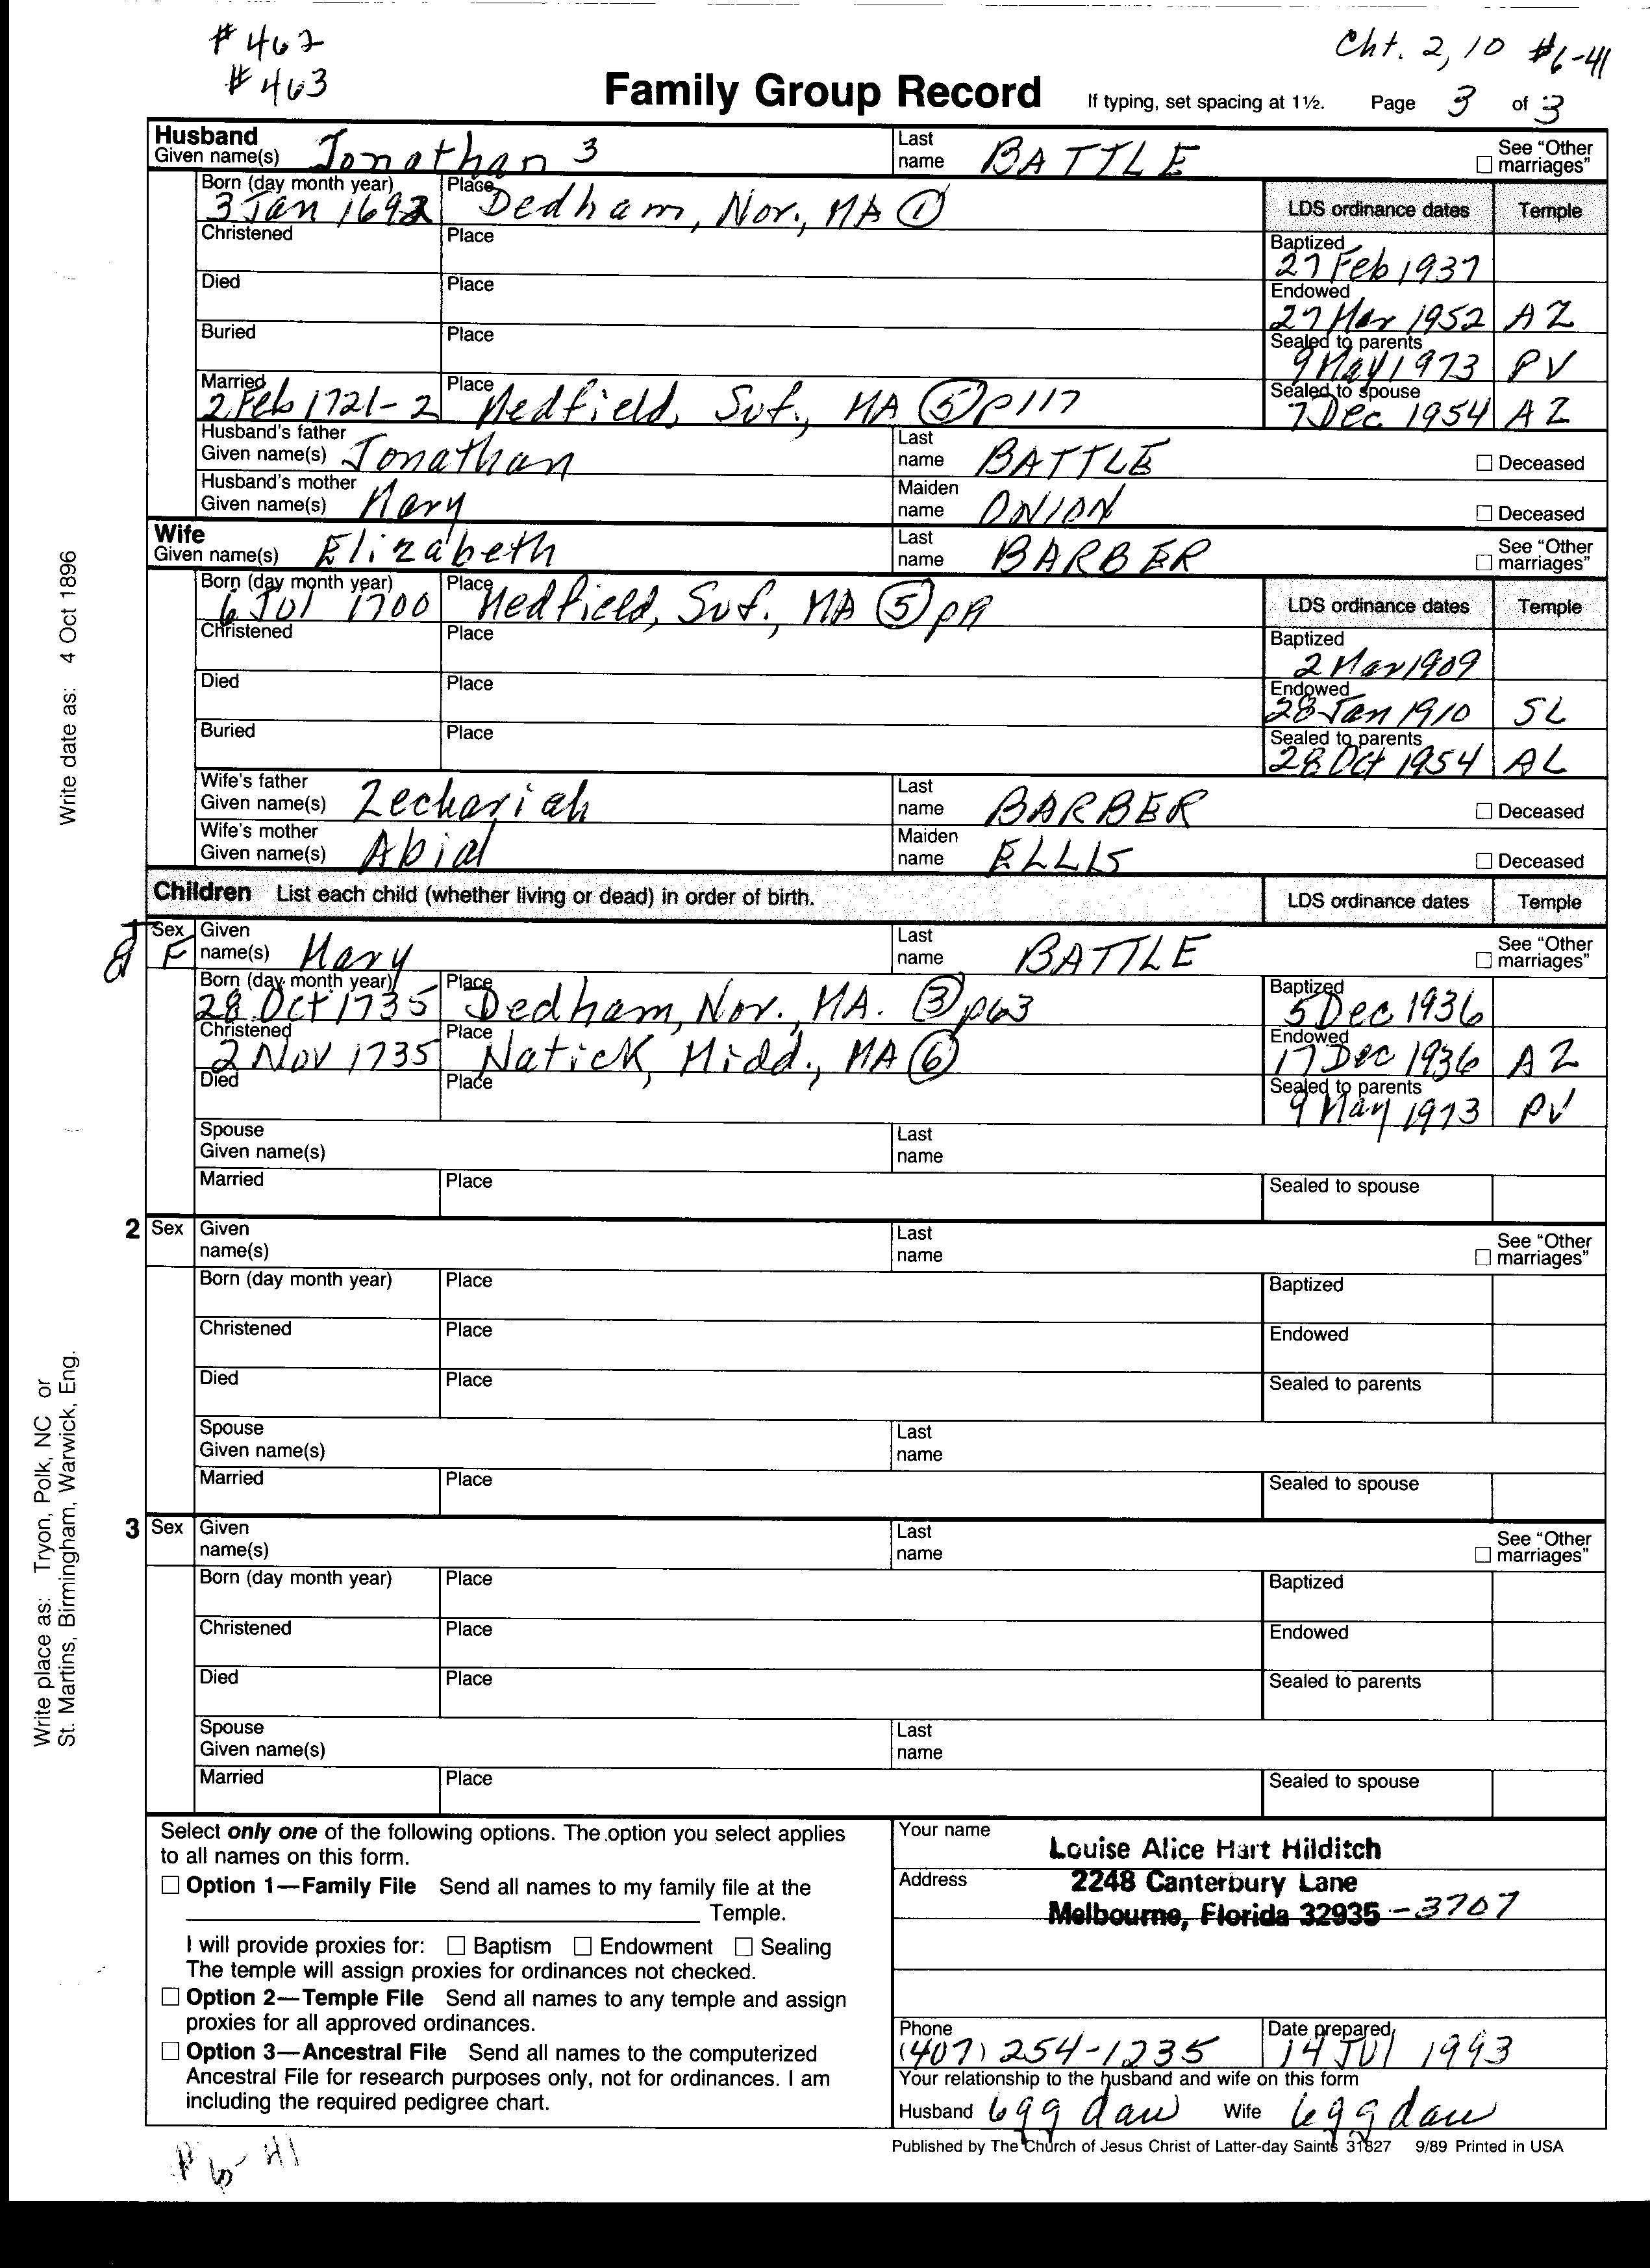 # 462
# 463
Cht. 2, 10 #6-41
Family Group Record If typing, set spacing at 1½. Page 3 of 3
Husband
Given name(s) Jonathan 3 Last name BATTLE See "Other marriages"
Born (day month year) 3 Jan 1692 Place Dedham, Nor., MA ① LDS ordinance dates Temple
Christened Place Baptized 27 Feb 1937
Died Place Endowed 27 Mar 1952 AZ
Buried Place Sealed to parents 9 May 1973 PV
Married 2 Feb 1721-2 Place Medfield, Suf., MA ⑤ p117 Sealed to spouse 7 Dec 1954 AZ
Husband's father
Given name(s) Jonathan Last name BATTLE Deceased
Husband's mother
Given name(s) Mary Maiden name ONION Deceased
Wife
Given name(s) Elizabeth Last name BARBER See "Other marriages"
Born (day month year) 6 Jul 1700 Place Medfield, Suf., MA ⑤ LDS ordinance dates Temple
Christened Place Baptized 2 Mar 1909
Died Place Endowed 28 Jan 1910 SL
Buried Place Sealed to parents 28 Oct 1954 AL
Wife's father
Given name(s) Zechariah Last name BARBER Deceased
Wife's mother
Given name(s) Abial Maiden name ELLIS Deceased
Children List each child (whether living or dead) in order of birth. LDS ordinance dates Temple
8 Sex F Given name(s) Mary Last name BATTLE See "Other marriages"
Born (day month year) 28 Oct 1735 Place Dedham, Nor., MA. ③ p63 Baptized 5 Dec 1936
Christened 2 Nov 1735 Place Natick, Midd., MA ⑥ Endowed 17 Dec 1936 AZ
Died Place Sealed to parents 9 May 1973 PV
Spouse
Given name(s) Last name
Married Place Sealed to spouse
2 Sex Given name(s) Last name See "Other marriages"
Born (day month year) Place Baptized
Christened Place Endowed
Died Place Sealed to parents
Spouse
Given name(s) Last name
Married Place Sealed to spouse
3 Sex Given name(s) Last name See "Other marriages"
Born (day month year) Place Baptized
Christened Place Endowed
Died Place Sealed to parents
Spouse
Given name(s) Last name
Married Place Sealed to spouse
Select only one of the following options. The option you select applies
to all names on this form.
Option 1—Family File Send all names to my family file at the
Temple.
I will provide proxies for: Baptism Endowment Sealing
The temple will assign proxies for ordinances not checked.
Option 2—Temple File Send all names to any temple and assign
proxies for all approved ordinances.
Option 3—Ancestral File Send all names to the computerized
Ancestral File for research purposes only, not for ordinances. I am
including the required pedigree chart.
Your name Louise Alice Hart Hilditch
Address 2248 Canterbury Lane
Melbourne, Florida 32935 -3707
Phone (407) 254-1235 Date prepared 14 Jul 1993
Your relationship to the husband and wife on this form
Husband 6 gg dau Wife 6 gg dau
Published by The Church of Jesus Christ of Latter-day Saints 31827 9/89 Printed in USA
# 6-41
Write date as: 4 Oct 1896
Write place as: Tryon, Polk, NC or
St. Martins, Birmingham, Warwick, Eng.